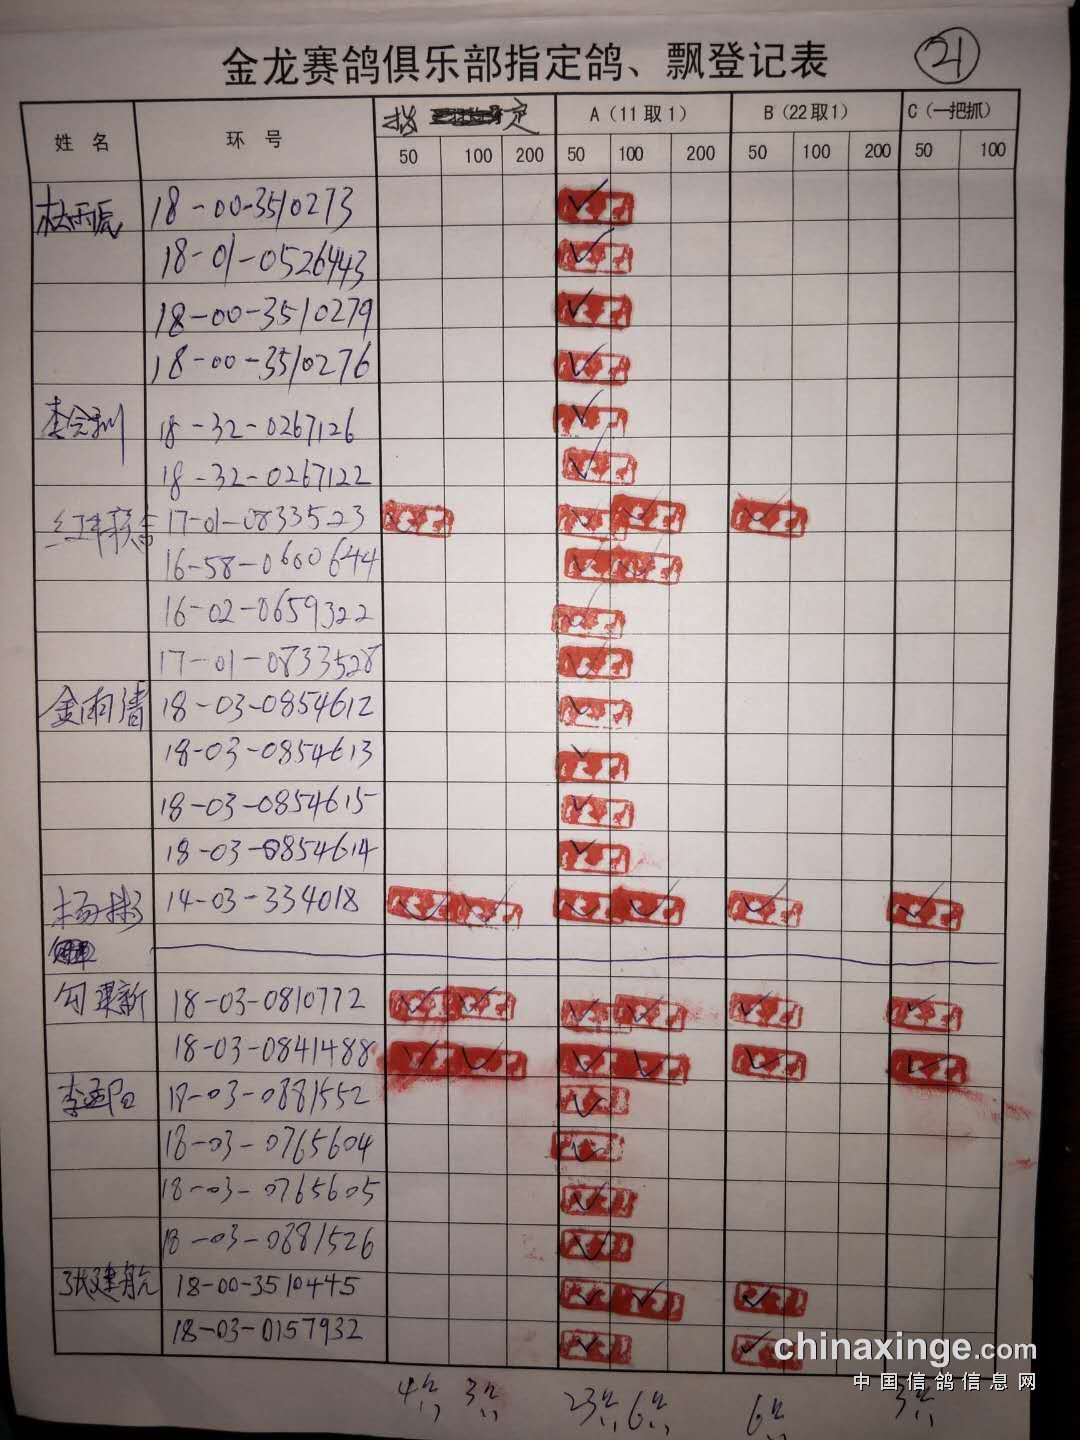 金龙赛鸽俱乐部指定鸽、飘登记表 21
姓 名 环 号 指 定 A(11取1) B(22取1) C(一把抓)
50 100 200 50 100 200 50 100 200 50 100
18-00-3510273
18-01-0526443
18-00-3510279
18-00-3510276
18-32-0267126
18-32-0267122
17-01-0833523
16-58-0600644
16-02-0659322
17-01-0833528
金雨清 18-03-0854612
18-03-0854613
18-03-0854615
18-03-0854614
杨彬 14-03-334018
18-03-0810772
18-03-0841488
18-03-0881552
18-03-0765604
18-03-0765605
18-03-0881526
张建航 18-00-3510445
18-03-0157932
chinaxinge.com
中国信鸽信息网
4 3 23 6 6 3